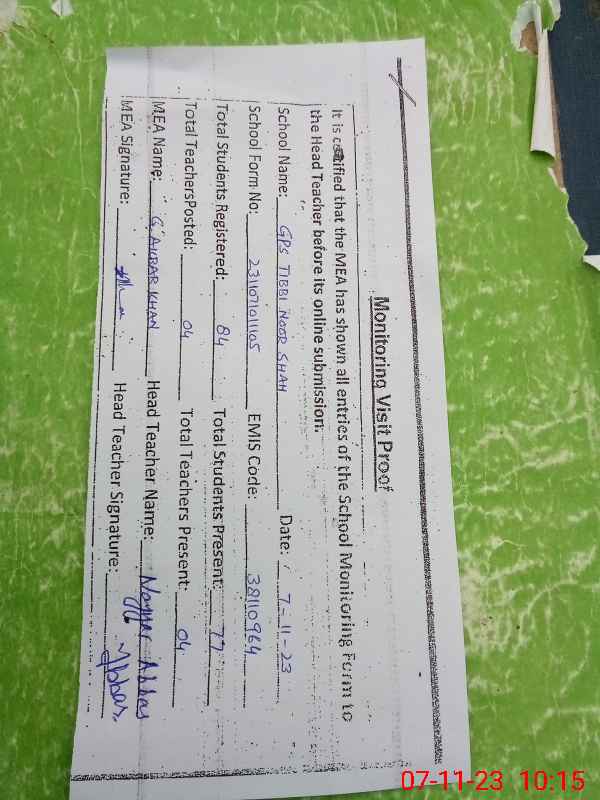 Monitoring Visit Proof
It is certified that the MEA has shown all entries of the School Monitoring Form to
the Head Teacher before its online submission.
School Name: GPS TIBBI NOOR SHAH Date: 7-11-23
School Form No: 231107101105 EMIS Code: 38110964
Total Students Registered: 84 Total Students Present: 77
Total TeachersPosted: 04 Total Teachers Present: 04
MEA Name: G. AKBAR KHAN Head Teacher Name: Abbas
MEA Signature: Head Teacher Signature: Abbas
07-11-23 10:15